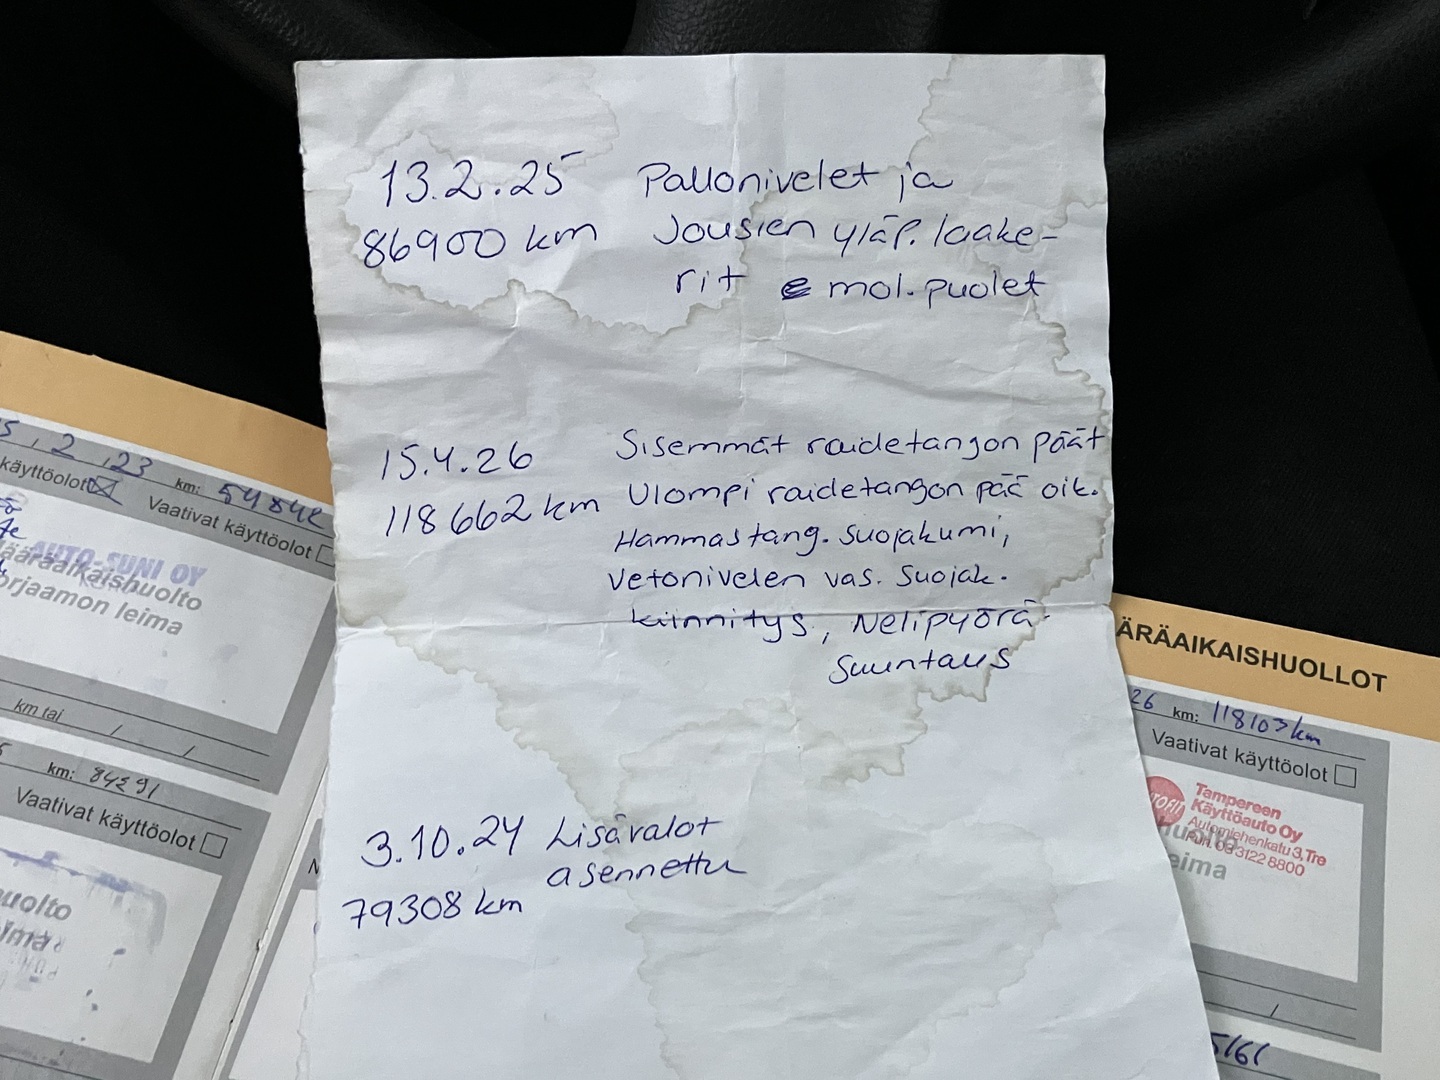 13.2.25 Pallonivelet ja
86900 km Jousien yläp. laake-
rit mol. puolet
15.4.26 Sisemmät raidetangon päät
118662 km Ulompi raidetangon pää oik.
Hammastang. suojakumi,
Vetonivelen vas. suojak.
kiinnitys, Nelipyörä-
suuntaus
3.10.24 Lisävalot
asennettu
79308 km
5.2.23 km: 54842
käyttöolot Vaativat käyttöolot
AUTO-SUNI OY
Määräaikaishuolto
korjaamon leima
km tai / /
km: 84291
Vaativat käyttöolot
huolto
leima
ÄRÄAIKAISHUOLLOT
26 km: 118103 km
Vaativat käyttöolot
Tampereen
Käyttöauto Oy
Automiehenkatu 3, Tre
Puh. 03 3122 8800
huolto
leima